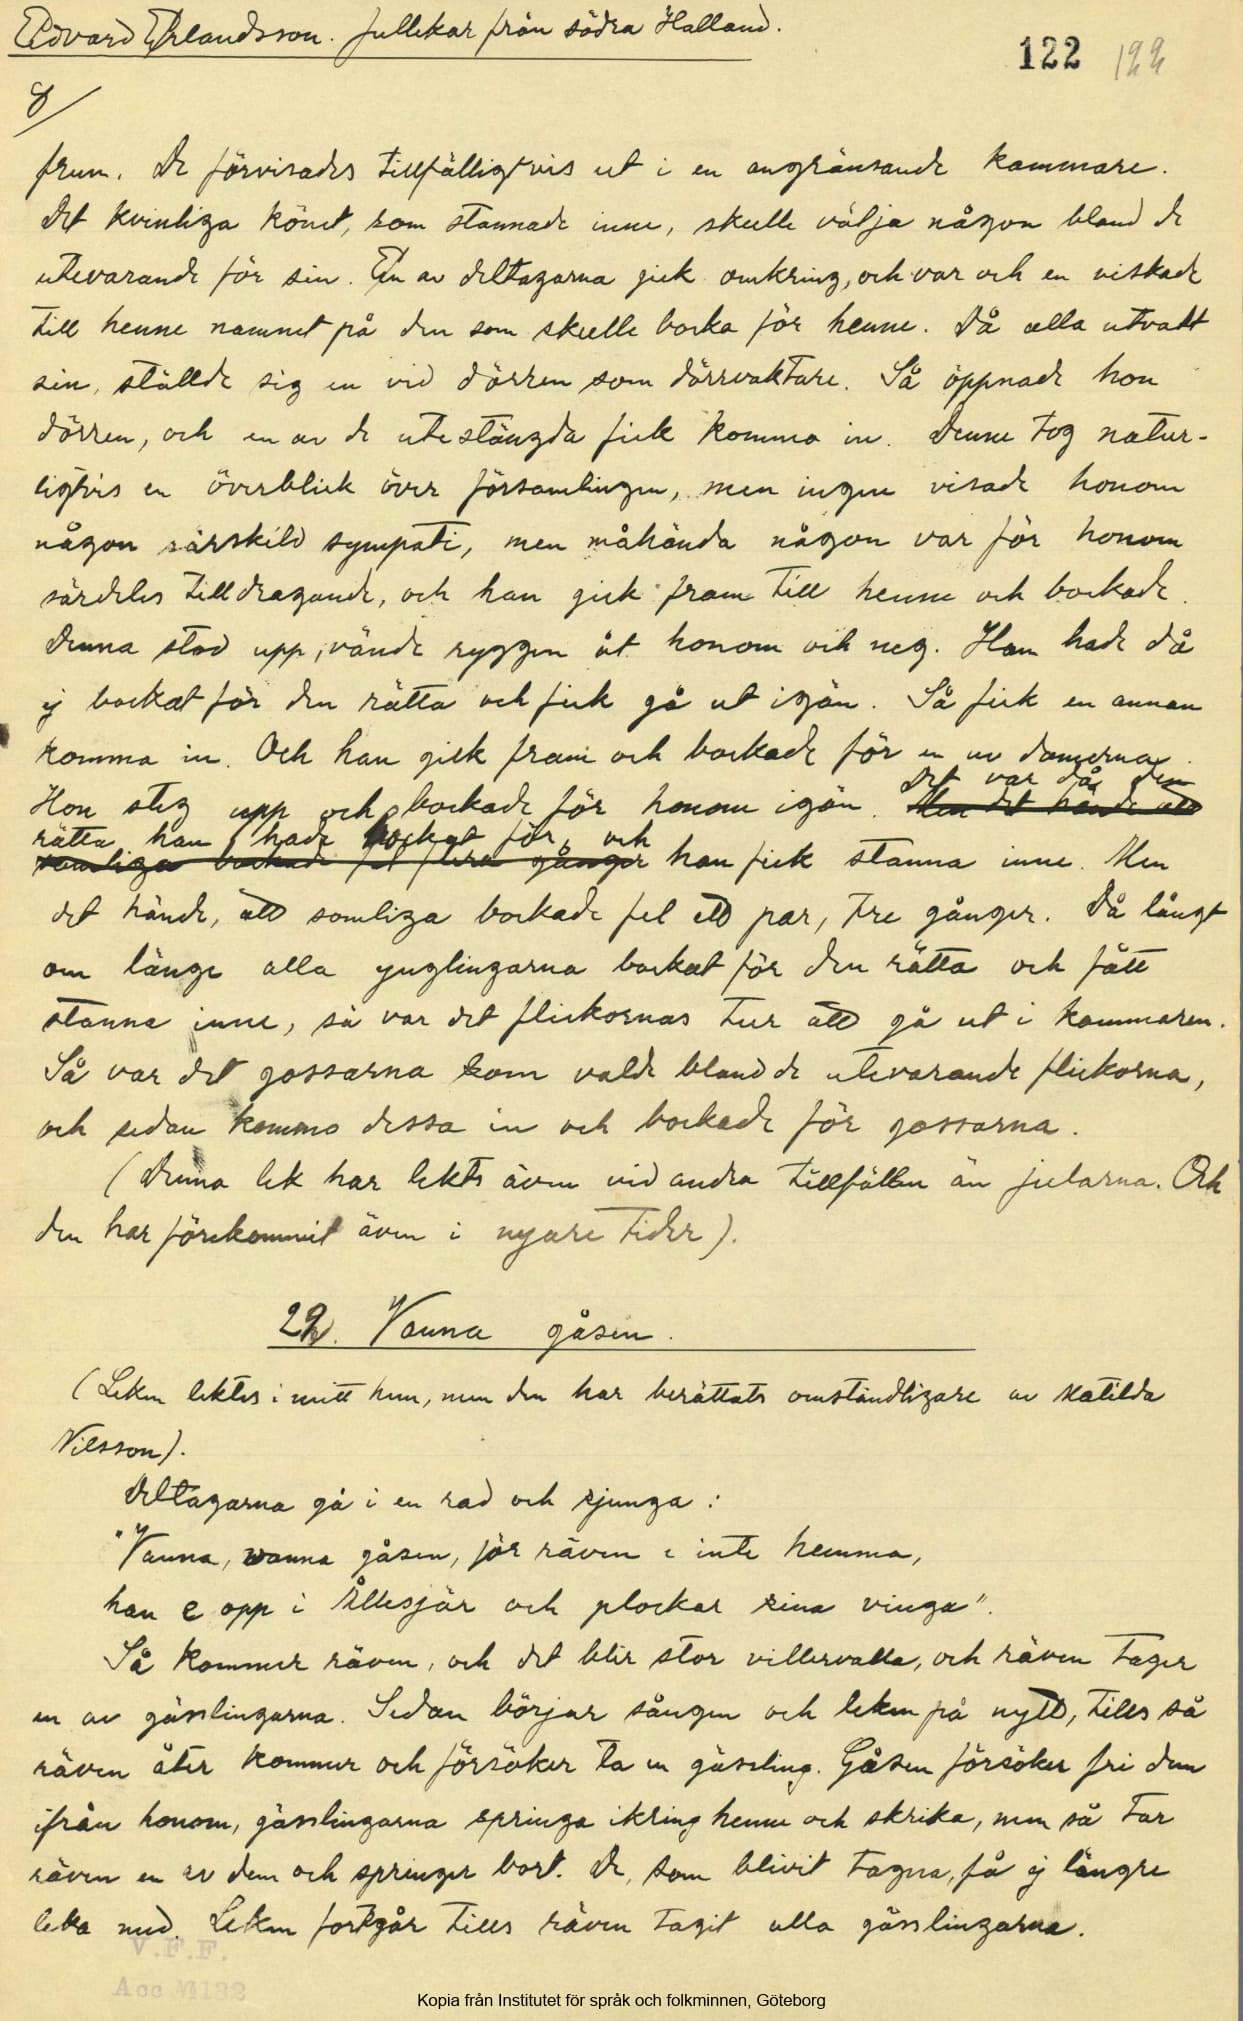 Edvard Erlandsson. Jullekar från södra Halland.
122 122
8/
frun. De förvisades tillfälligtvis ut i en angränsande kammare.
Det kvinliga könet, som stannade inne, skulle välja någon bland de
utevarande för sin. En av deltagarna gick omkring, och var och en viskade
till henne namnet på den som skulle bocka för henne. Då alla utvalt
sin, ställde sig en vid dörren som dörrvaktare. Så öppnade hon
dörren, och en av de utestängda fick komma in. Denne tog natur-
ligtvis en överblick över församlingen, men ingen visade honom
någon särskild sympati, men måhända någon var för honom
särdeles tilldragande, och han gick fram till henne och bockade.
Denna stod upp, vände ryggen åt honom och neg. Han hade då
ej bockat för den rätta och fick gå ut igän. Så fick en annan
komma in. Och han gick fram och bockade för en av damerna.
Det var då den
Hon steg upp och bockade för honom igän. Men det hände att
rätta han hade bockat för, och
somliga bockade fel flera gånger han fick stanna inne. Men
det hände, att somliga bockade fel ett par, tre gånger. Då långt
om länge alla ynglingarna bockat för den rätta och fått
stanna inne, så var det flickornas tur att gå ut i kammaren.
Så var det gossarna som valde bland de utevarande flickorna,
och sedan kommo dessa in och bockade för gossarna.
(Denna lek har lekts även vid andra tillfällen än jularna. Och
den har förekommit även i nyare tider).
22. Vanna gåsen.
(Leken lektes i mitt hem, men den har berättats omständligare av Matilda
Nilsson).
Deltagarna gå i en rad och sjunga:
"Vanna, vanna gåsen, för räven e inte hemma,
han e opp i Ållesjär och plockar sina vinga".
Så kommer räven, och det blir stor villervalla, och räven tager
en av gässlingarna. Sedan börjar sången och leken på nytt, tills så
räven åter kommer och försöker ta en gässling. Gåsen försöker fri dem
ifrån honom, gässlingarna springa ikring henne och skrika, men så tar
räven en av dem och springer bort. De, som blivit tagna, få ej längre
leka med. Leken fortgår tills räven tagit alla gässlingarna.
V.F.F.
Acc M132
Kopia från Institutet för språk och folkminnen, Göteborg